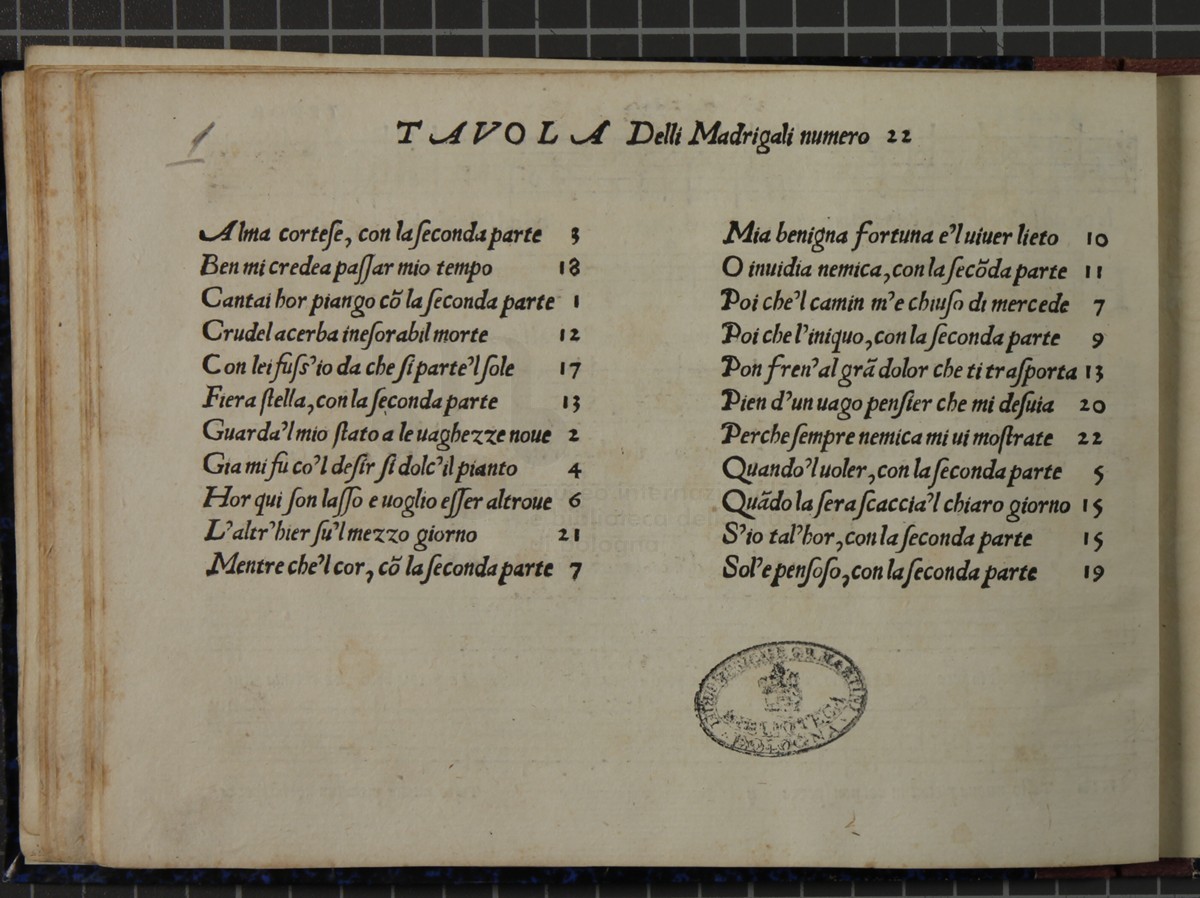 1
TAVOLA Delli Madrigali numero 22
Alma corteſe, con la ſeconda parte 3
Ben mi credea paſſar mio tempo 18
Cantai hor piango cõ la ſeconda parte 1
Crudel acerba ineſorabil morte 12
Con lei fuſſ'io da che ſi parte'l ſole 17
Fiera ſtella, con la ſeconda parte 13
Guarda'l mio ſtato a le uaghezze noue 2
Gia mi fu co'l deſir ſi dolc'il pianto 4
Hor qui ſon laſſo e uoglio eſſer altroue 6
L'altr'hier ſu'l mezzo giorno 21
Mentre che'l cor, cõ la ſeconda parte 7
Mia benigna fortuna e'l uiuer lieto 10
O inuidia nemica, con la ſecõda parte 11
Poi che'l camin m'e chiuſo di mercede 7
Poi che l'iniquo, con la ſeconda parte 9
Pon fren'al grã dolor che ti traſporta 13
Pien d'un uago penſier che mi deſuia 20
Perche ſempre nemica mi ui moſtrate 22
Quando'l uoler, con la ſeconda parte 5
Quãdo la ſera ſcaccia'l chiaro giorno 15
S'io tal'hor, con la ſeconda parte 15
Sol'e penſoſo, con la ſeconda parte 19